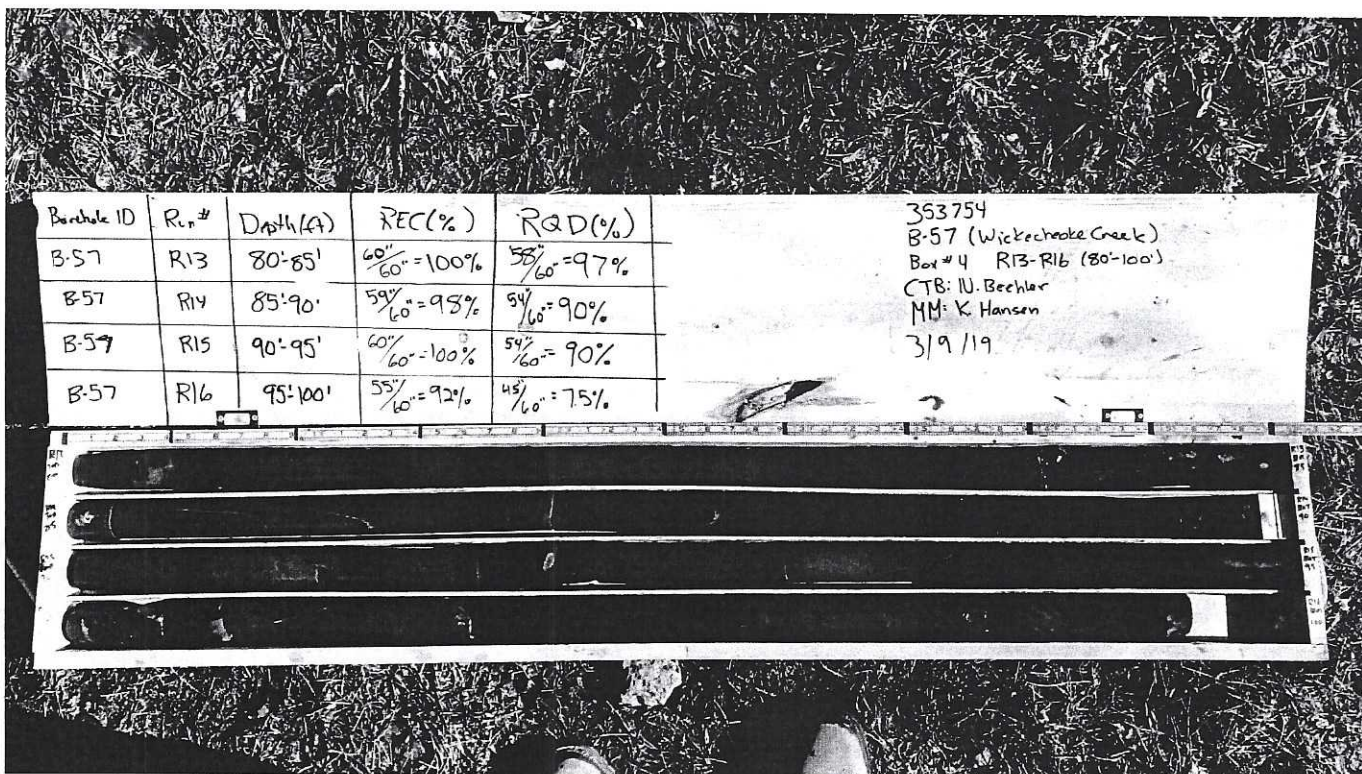 Borehole ID Run# Depth(ft) REC(%) RQD(%)
B-57 R13 80'-85' 60"/60"=100% 58"/60"=97%
B-57 R14 85'-90' 59"/60"=98% 54"/60"=90%
B-57 R15 90'-95' 60"/60"=100% 54"/60"=90%
B-57 R16 95'-100' 55"/60"=92% 45"/60"=75%
353754
B-57 (Wickecheoke Creek)
Box #4 R13-R16 (80'-100')
CTB: N. Beehler
MM: K Hansen
3/9/19